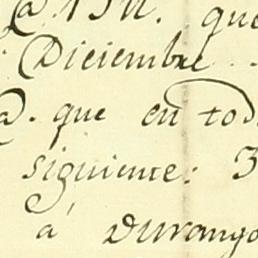 que
Diciembre
que en tod
siguiente: 3
á Durango